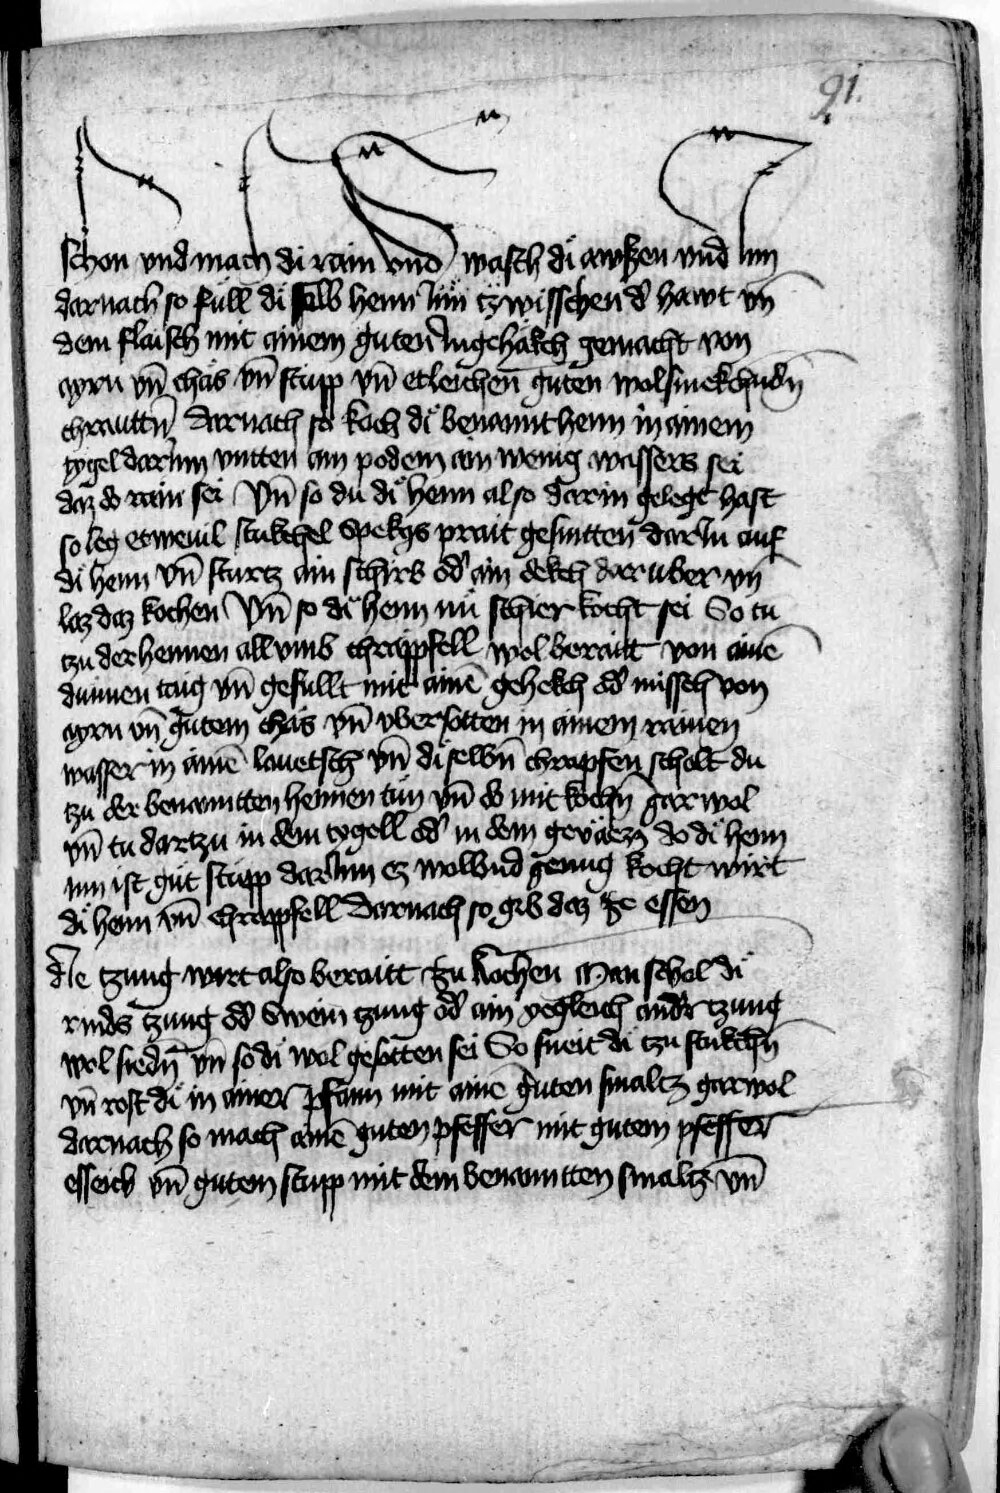 91.
schon vnd mach di rain vnd wasch di awßen vnd Inn
darnach so füll di selb henn Inn tzwisschen d hawt vn̄
dem flaisch mit ainem guten Ingehäkch gemacht von
ayrn vn̄ chäs vn̄ stupp vn̄ etleichen guten wolsmekchndn̄
chrauttn̄ Darnach so koch di benannt henn in ainem
tygel darInn vntten am podem ain wenig wassers sei
daz do rain sei Vn̄ so du di henn also darin gelegt hast
so leg etwevil stukchel spekgs prait gesnitten darIn auf
di henn vn̄ sturtz ain schirb od' ain dekch daruber vn̄
laz daz kochen Vn̄ so di henn nu schier kocht sei So tu
tzu der hennen all vmb chräppfell wol beraitt von aine̅
dunnen taig vn̄ gefullt mit aine̅ gehekch od' missch von
ayrn vn̄ gutem chäs vn̄ vbersotten in ainem rainen
wasser in aine̅ lauetsch vn̄ di selbn̄ chrapfen scholt du
tzu der benanntten hennen tun vn̄ do mit kochn̄ gar wol
vn̄ tu dartzu in dem tygell od' in dem geväezz do di henn
inn ist gut stupp darInn ez wol vnd genug kocht wirt
di henn vn̄ chräppfell Darnach so gib daz ze essen
Die tzung wirt also beraitt zu kochen Man schol di
rinds tzung od' swein tzung od' ain yegleich andr tzung
wol siedn̄ vn̄ so di wol gesotten sei So sneit di tzu stukchn̄
vn̄ rost di in ainer pfann mit aine̅ guten smaltz gar wol
darnach so mach aine̅ guten pfeffer mit gutem pfeffer
esseich vn̄ gutem stupp mit dem benanntten smaltz vn̄